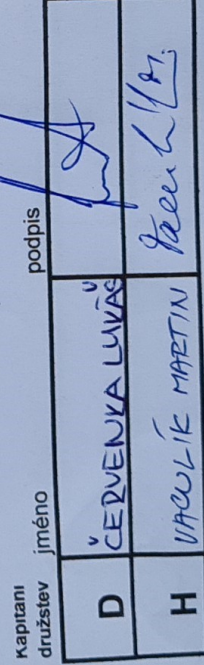 Kapitáni
družstev jméno podpis
D ČERVENKA LUKÁŠ
H VACULÍK MARTIN